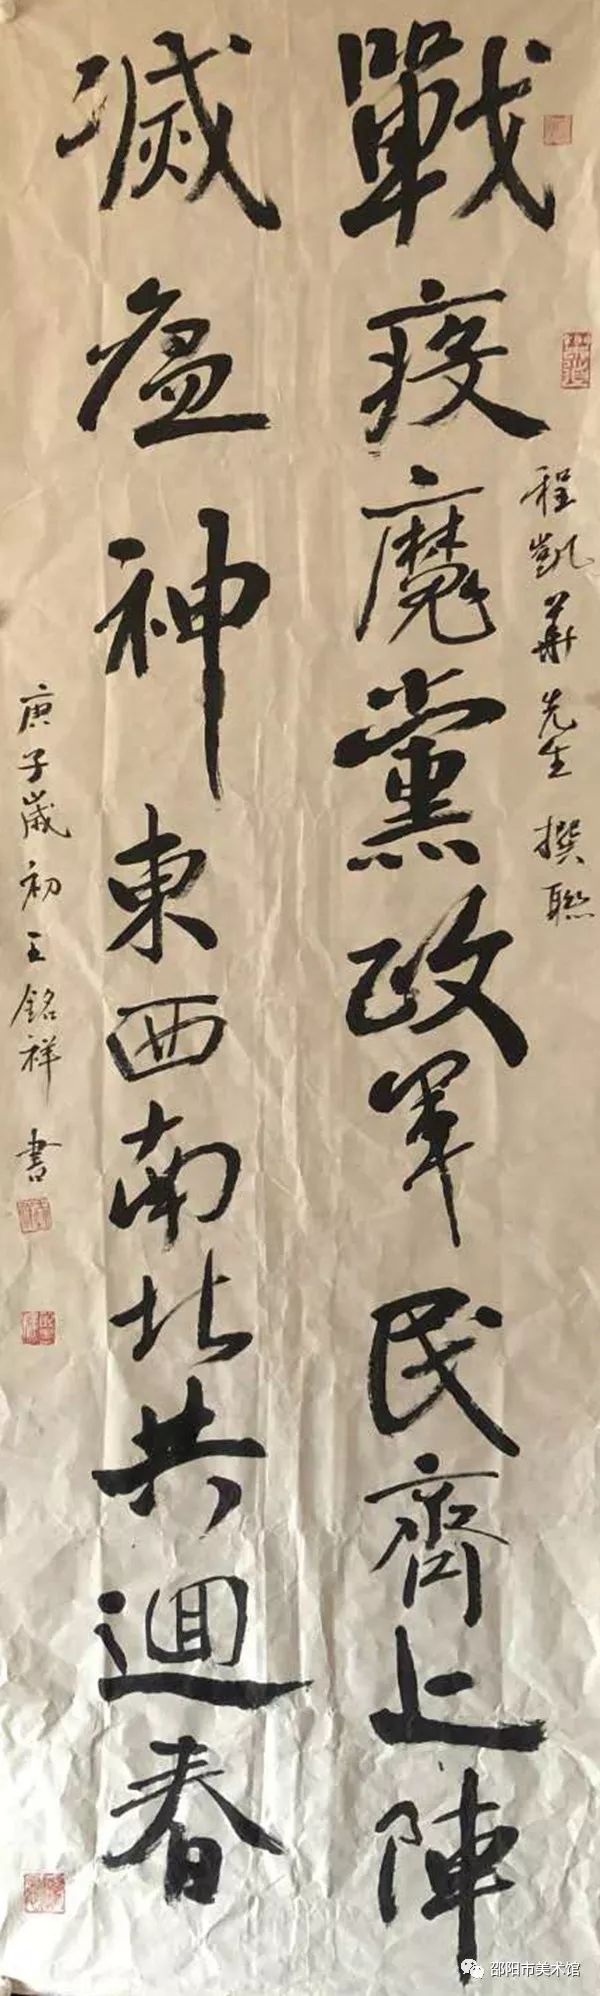 戰疫魔黨政軍民齊上陣
程凱華先生撰聯
滅瘟神東西南北共迴春
庚子歲初王銘祥書
邵阳市美术馆